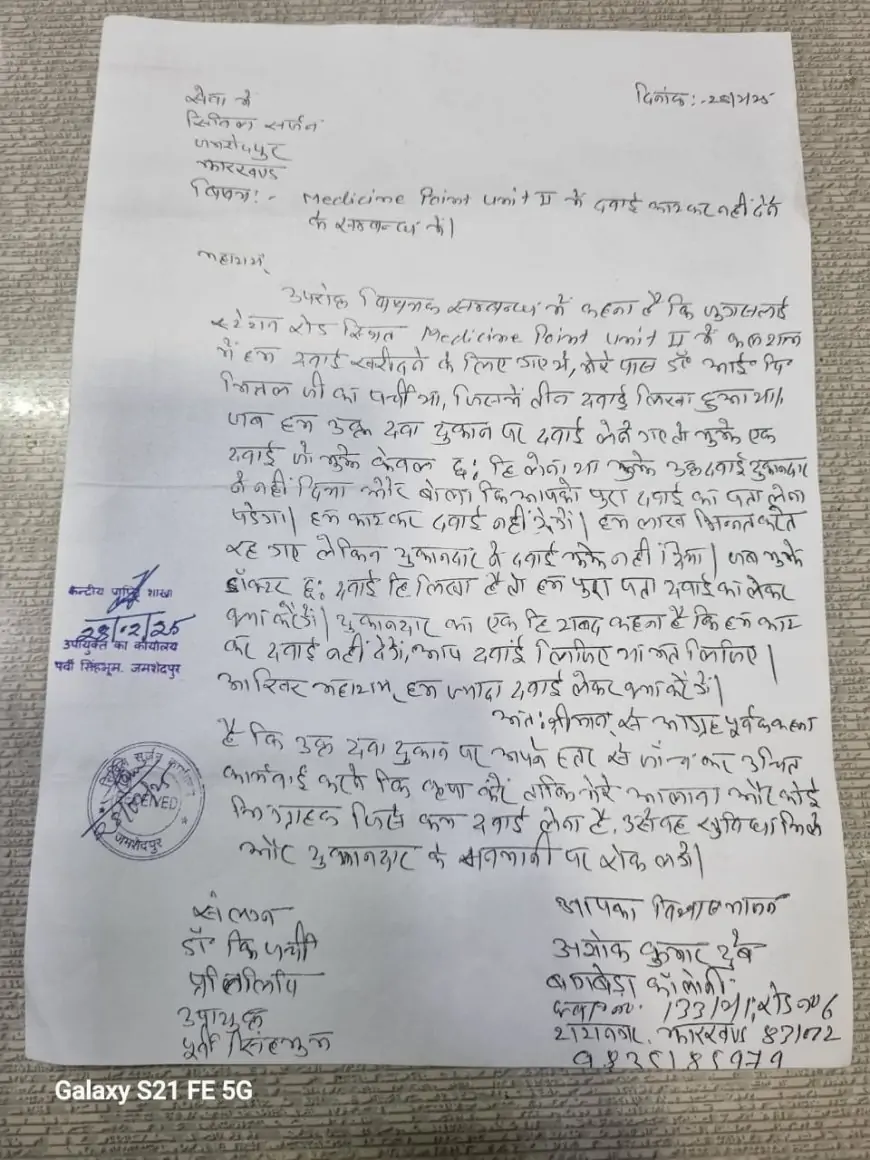 दिनांक :- 28/2/25
सेवा में
सिविल सर्जन
जमशेदपुर
झारखण्ड
विषय :- Medicine Point Unit II में दवाई काटकर नहीं देने
के सम्बन्ध में।
महाशय,
उपरोक्त विषयक सम्बन्ध में कहना है कि जुगसलाई
स्टेशन रोड स्थित Medicine Point Unit II में
में हम दवाई खरीदने के लिए गए थे, मेरे पास डॉ आई० पि०
मित्तल जी का पर्ची था, जिसमें तीन दवाई लिखा हुआ था।
जब हम उक्त दवा दुकान पर दवाई लेने गए तो मुझे एक
दवाई जो मुझे केवल छ: हि लेना था मुझे उक्त दवाई दुकानदार
ने नहीं दिया और बोला कि आपको पुरा दवाई का पता लेना
पड़ेगा। हम काटकर दवाई नहीं देगें। हम लाख मिनत करते
रह गए लेकिन दुकानदार ने दवाई मुझे नहीं दिया। जब मुझे
डॉक्टर छ: दवाई हि लिखा है तो हम पुरा पता दवाई का लेकर
क्या करेगें। दुकानदार का एक हि शब्द कहना है कि हम काट
कर दवाई नहीं देगें, आप दवाई लिजिए या मत लिजिए।
आखिर महाशय, हम ज्यादा दवाई लेकर क्या करेगें।
अत: श्रीमान् से आग्रह पूर्वक कहना
है कि उक्त दवा दुकान पर अपने स्तर से जाँच कर उचित
कार्रवाई करने कि कृपा करें ताकि मेरे अलावा और कोई
भि ग्राहक जिसे कम दवाई लेना है, उसे यह सुविधा मिले
और दुकानदार के मनमानी पर रोक लगे।
केन्द्रीय प्राप्ति शाखा
28/02/25
उपायुक्त का कार्यालय
पूर्वी सिंहभूम, जमशेदपुर
सिविल सर्जन कार्यालय
RECEIVED
जमशेदपुर
संलग्न
डॉ० कि पर्ची
प्रतिलिपि
उपायुक्त
पूर्वी सिंहभुम
आपका विश्वासभाजन
अशोक कुमार दुबे
बागबेड़ा कॉलोनी
रोड न० 6
टाटानगर, झारखण्ड
Galaxy S21 FE 5G